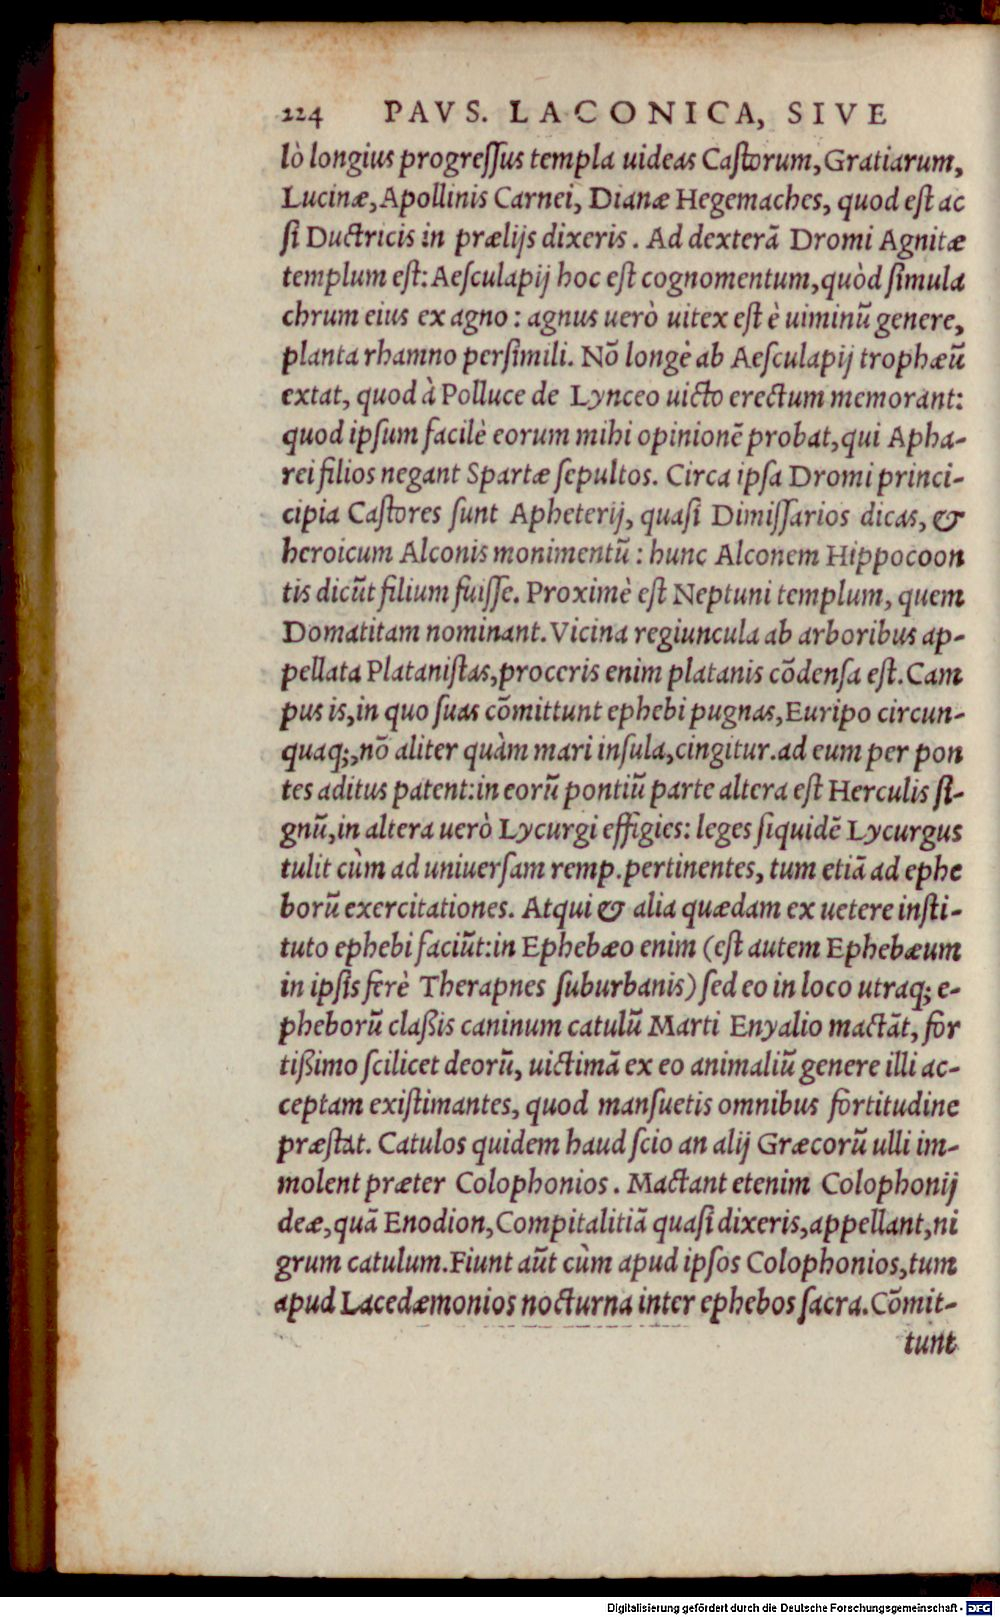 224 PAVS. LACONICA, SIVE
lò longius progreſſus templa uideas Caſtorum, Gratiarum,
Lucinæ, Apollinis Carnei, Dianæ Hegemaches, quod eſt ac
ſi Ductricis in prælijs dixeris. Ad dexterā Dromi Agnitæ
templum eſt: Aeſculapij hoc eſt cognomentum, quòd ſimula
chrum eius ex agno: agnus uerò uitex eſt è uiminū genere,
planta rhamno perſimili. Nō longè ab Aeſculapij trophæū
extat, quod à Polluce de Lynceo uicto erectum memorant:
quod ipſum facilè eorum mihi opinionē probat, qui Apha-
rei filios negant Spartæ ſepultos. Circa ipſa Dromi princi-
cipia Caſtores ſunt Apheterij, quaſi Dimiſſarios dicas, &
heroicum Alconis monimentū: hunc Alconem Hippocoon
tis dicūt filium fuiſſe. Proximè eſt Neptuni templum, quem
Domatitam nominant. Vicina regiuncula ab arboribus ap-
pellata Plataniſtas, proceris enim platanis cōdenſa eſt. Cam
pus is, in quo ſuas cōmittunt ephebi pugnas, Euripo circun-
quaq;, nō aliter quàm mari inſula, cingitur. ad eum per pon
tes aditus patent: in eorū pontiū parte altera eſt Herculis ſi-
gnū, in altera uerò Lycurgi effigies: leges ſiquidē Lycurgus
tulit cùm ad uniuerſam remp. pertinentes, tum etiā ad ephe
borū exercitationes. Atqui & alia quædam ex uetere inſti-
tuto ephebi faciūt: in Ephebæo enim (eſt autem Ephebæum
in ipſis ferè Therapnes ſuburbanis) ſed eo in loco utraq; e-
pheborū claßis caninum catulū Marti Enyalio mactāt, for
tißimo ſcilicet deorū, uictimā ex eo animaliū genere illi ac-
ceptam exiſtimantes, quod manſuetis omnibus fortitudine
præſtat. Catulos quidem haud ſcio an alij Græcorū ulli im-
molent præter Colophonios. Mactant etenim Colophonij
deæ, quā Enodion, Compitalitiā quaſi dixeris, appellant, ni
grum catulum. Fiunt aūt cùm apud ipſos Colophonios, tum
apud Lacedæmonios nocturna inter ephebos ſacra. Cōmit-
tunt
Digitalisierung gefördert durch die Deutsche Forschungsgemeinschaft - DFG